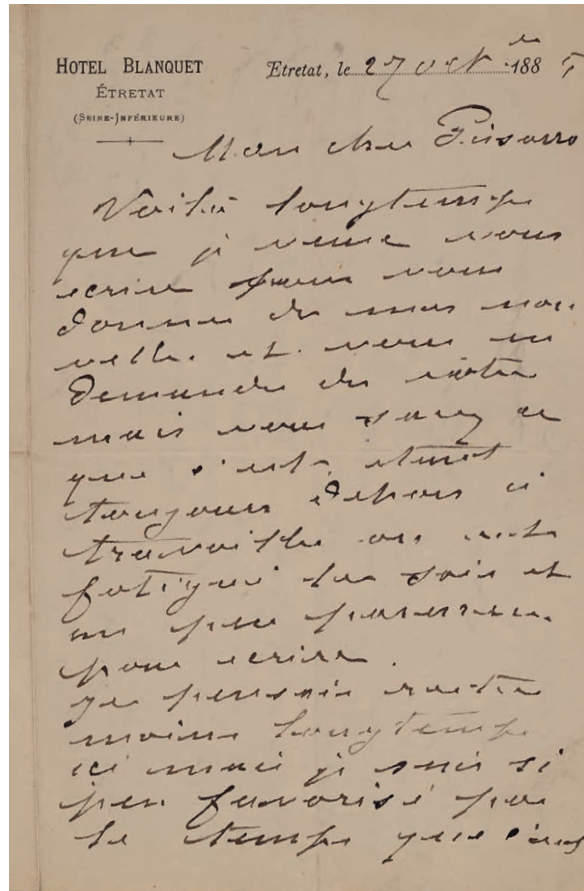 HOTEL BLANQUET
ÉTRETAT
(SEINE-INFÉRIEURE)
Etretat, le 27 oct bre 1885
Mon cher Pissarro
Voilà longtemps
que je veux vous
ecrire pour vous
donner de mes nou-
velles et vous en
demander des vôtres
mais vous savez ce
que c'est, etant
toujours dehors à
travailler on est
fatigué le soir et
un peu paresseux
pour ecrire.
Je pensais rester
moins longtemps
ici mais je suis si
peu favorisé par
le temps que